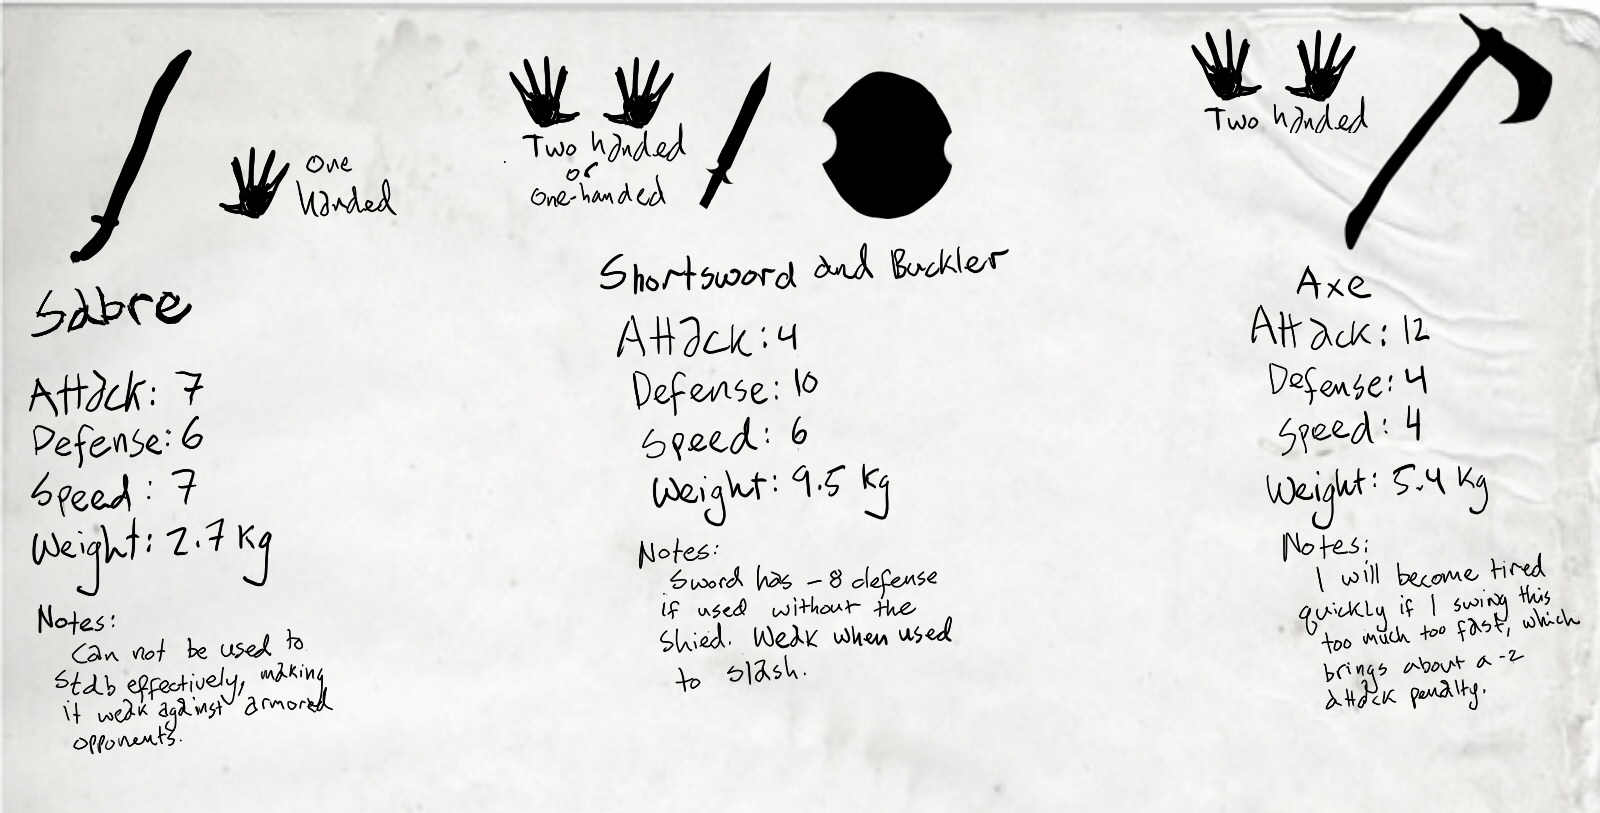 One
handed
Sabre
Attack: 7
Defense: 6
Speed: 7
Weight: 2.7 Kg
Notes:
Can not be used to
stab effectively, making
it weak against armored
opponents.
Two handed
or
one-handed
Shortsword and Buckler
Attack: 4
Defense: 10
Speed: 6
Weight: 9.5 Kg
Notes:
Sword has -8 defense
if used without the
shied. Weak when used
to slash.
Two handed
Axe
Attack: 12
Defense: 4
Speed: 4
Weight: 5.4 Kg
Notes:
I will become tired
quickly if I swing this
too much too fast, which
brings about a -2
attack penalty.